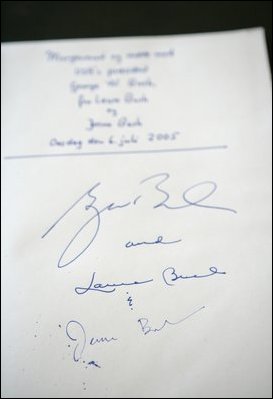 Morgenmad og møde med
USA's præsident
George W. Bush,
fru Laura Bush
og
Jenna Bush
Onsdag den 6. juli 2005
George Bush
and
Laura Bush
&
Jenna Bush